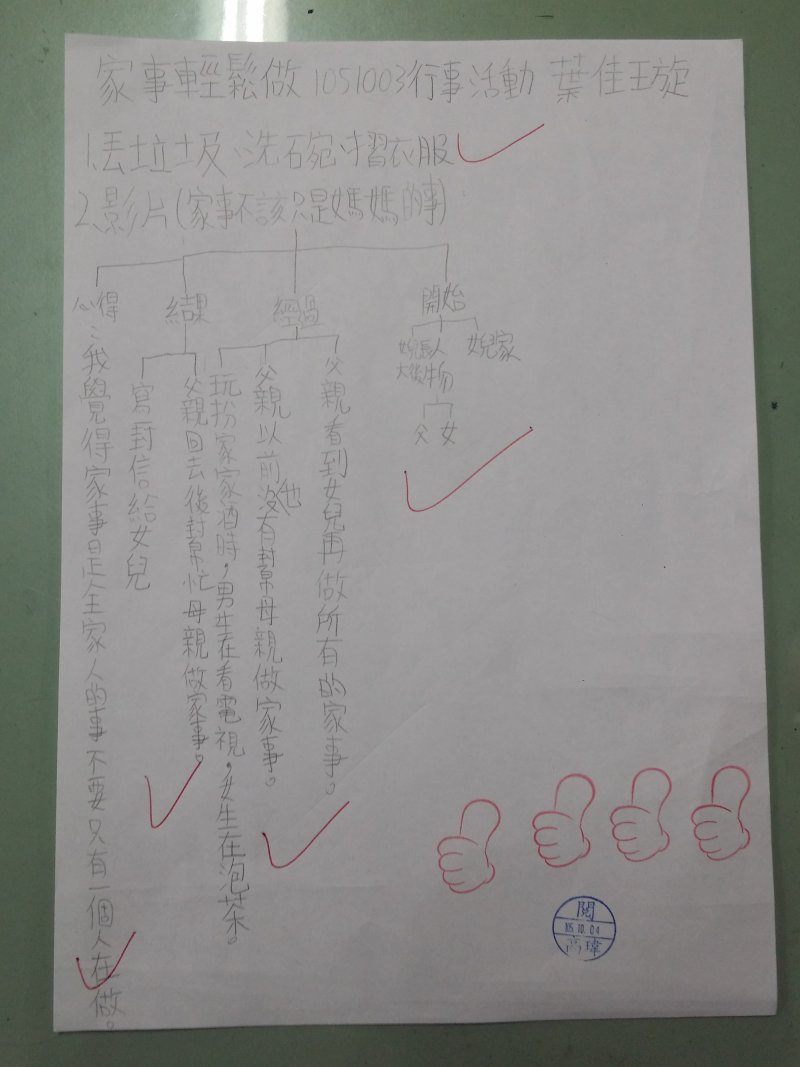 家事輕鬆做 1051003行事活動 葉佳璇
1.丟垃圾、洗碗、摺衣服
2.影片(家事不該只是媽媽的事)
開始
婗家
婗長大後
人物
父 女
經過
父親看到女兒再做所有的家事。
父親以前他沒有幫母親做家事。
玩扮家家酒時,男生在看電視,女生在泡茶。
結果
父親回去後幫忙母親做家事。
寫封信給女兒
心得:我覺得家事是全家人的事不要只有一個人在做。
閱
105.10.04
高瑋